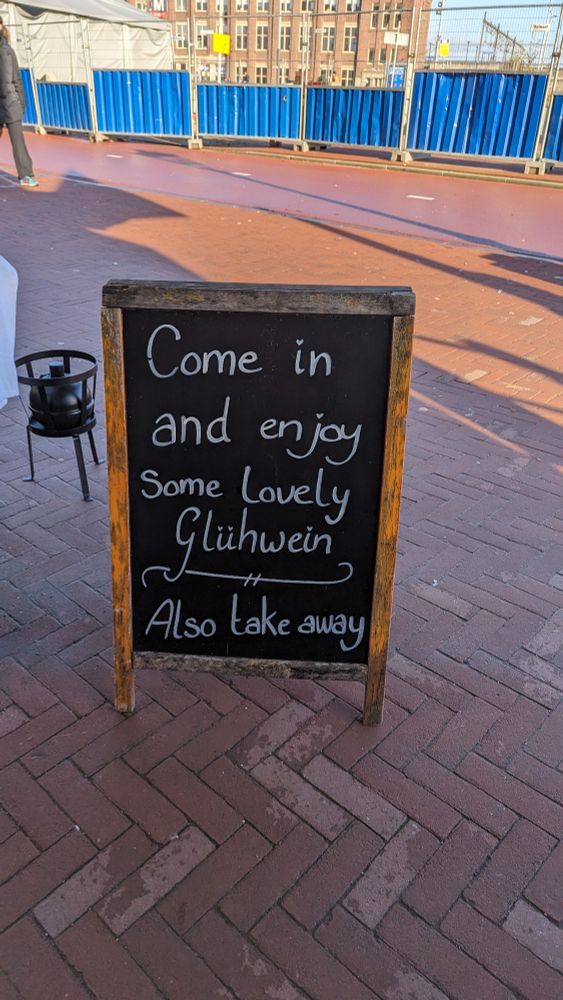 Come in
and enjoy
Some Lovely
Glühwein
Also take away